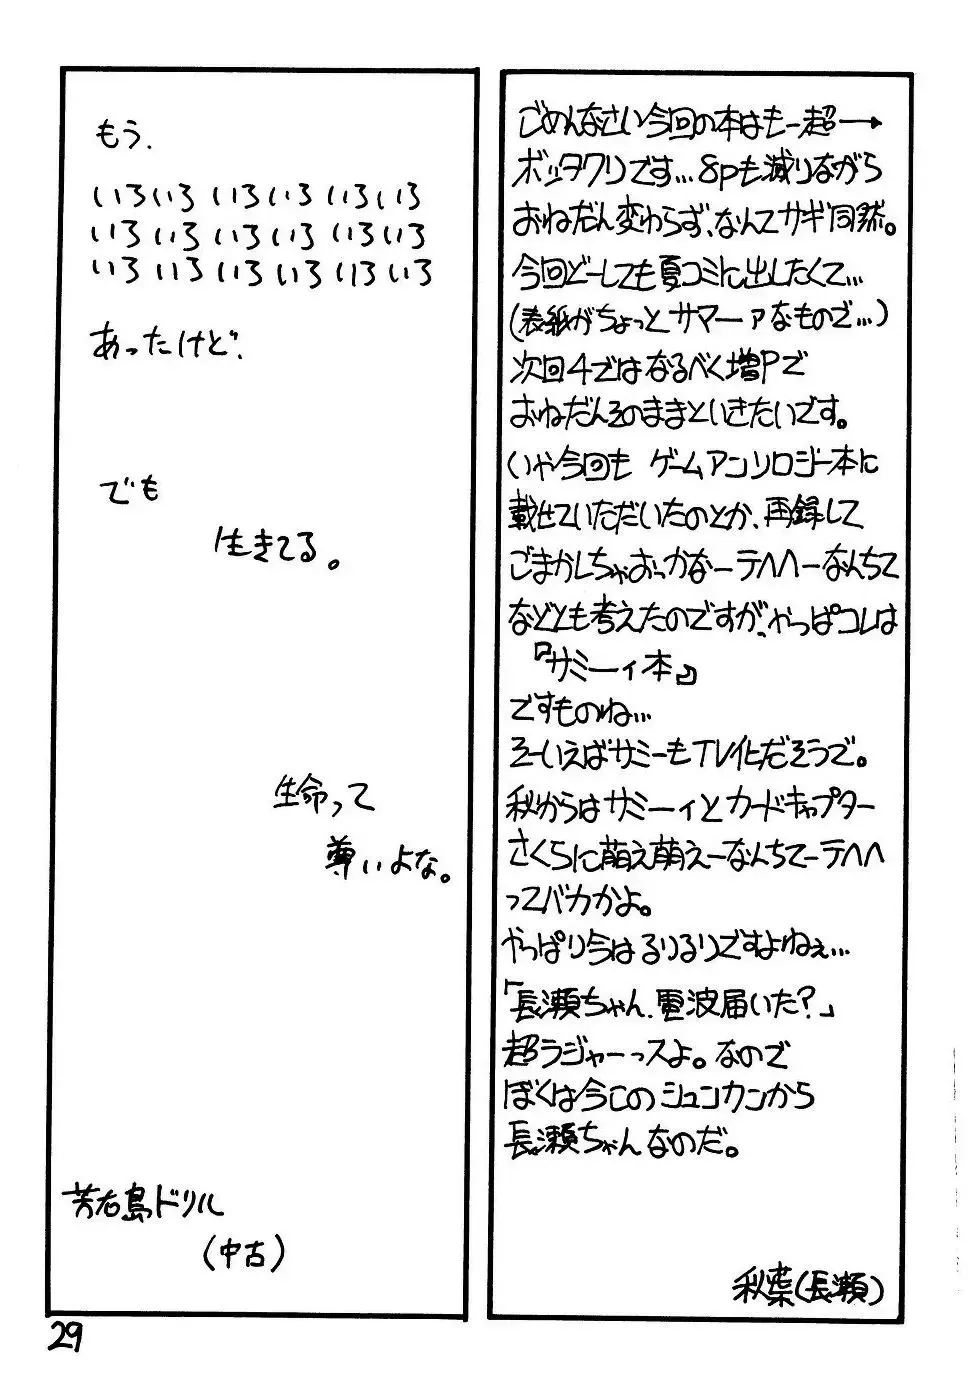 もう、
いろいろ いろいろ いろいろ
いろいろ いろいろ いろいろ
いろいろ いろいろ いろいろ
あったけど、
でも
生きてる。
生命って
尊いよな。
芳右島ドリル
(中古)
29
ごめんなさい今回の本はもー超一→
ボッタクリです…8pも減りながら
おねだん変わらず、なんてサギ同然。
今回どーしても夏コミに出したくて…
(表紙がちょっとサマーァなもので…)
次回4ではなるべく増Pで
おねだんそのままといきたいです。
いや今回も ゲームアンソロジー本に
載せていただいたのとか、再録して
ごまかしちゃおっかなーテヘヘーなんちて
などとも考えたのですが、やっぱコレは
『サミーィ本』
ですものね…
そーいえばサミーもTV化だそうで。
秋からはサミーィとカードキャプター
さくらに萌え萌えーなんちてーテヘヘ
ってバカかよ。
やっぱり今はるりるりですよねぇ…
「長瀬ちゃん、電波届いた?」
超ラジャーっスよ。なので
ぼくは今このシュンカンから
長瀬ちゃんなのだ。
(長瀬)